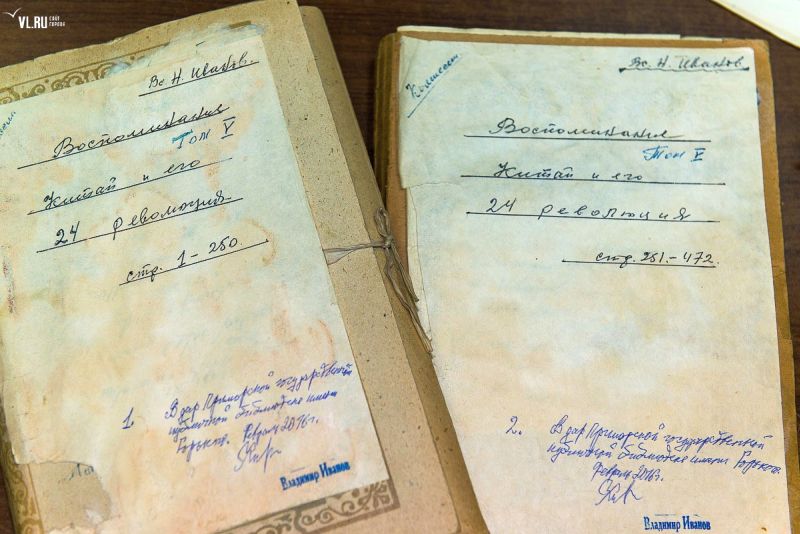 VL.RU САЙТ ГОРОДА
Вс. Н. Иванов.
Воспоминания
Том V
Китай и его
24 революция
стр. 1-250.
1. В дар Приморской государственной
публичной библиотеке имени
Горького. Февраль 2016 г.
Владимир Иванов
Комиссии
Вс. Н. Иванов
Воспоминания
Том V
Китай и его
24 революция
стр. 251.-472.
2. В дар Приморской государственной
публичной библиотеке имени Горького.
Февраль 2016г.
Владимир Иванов